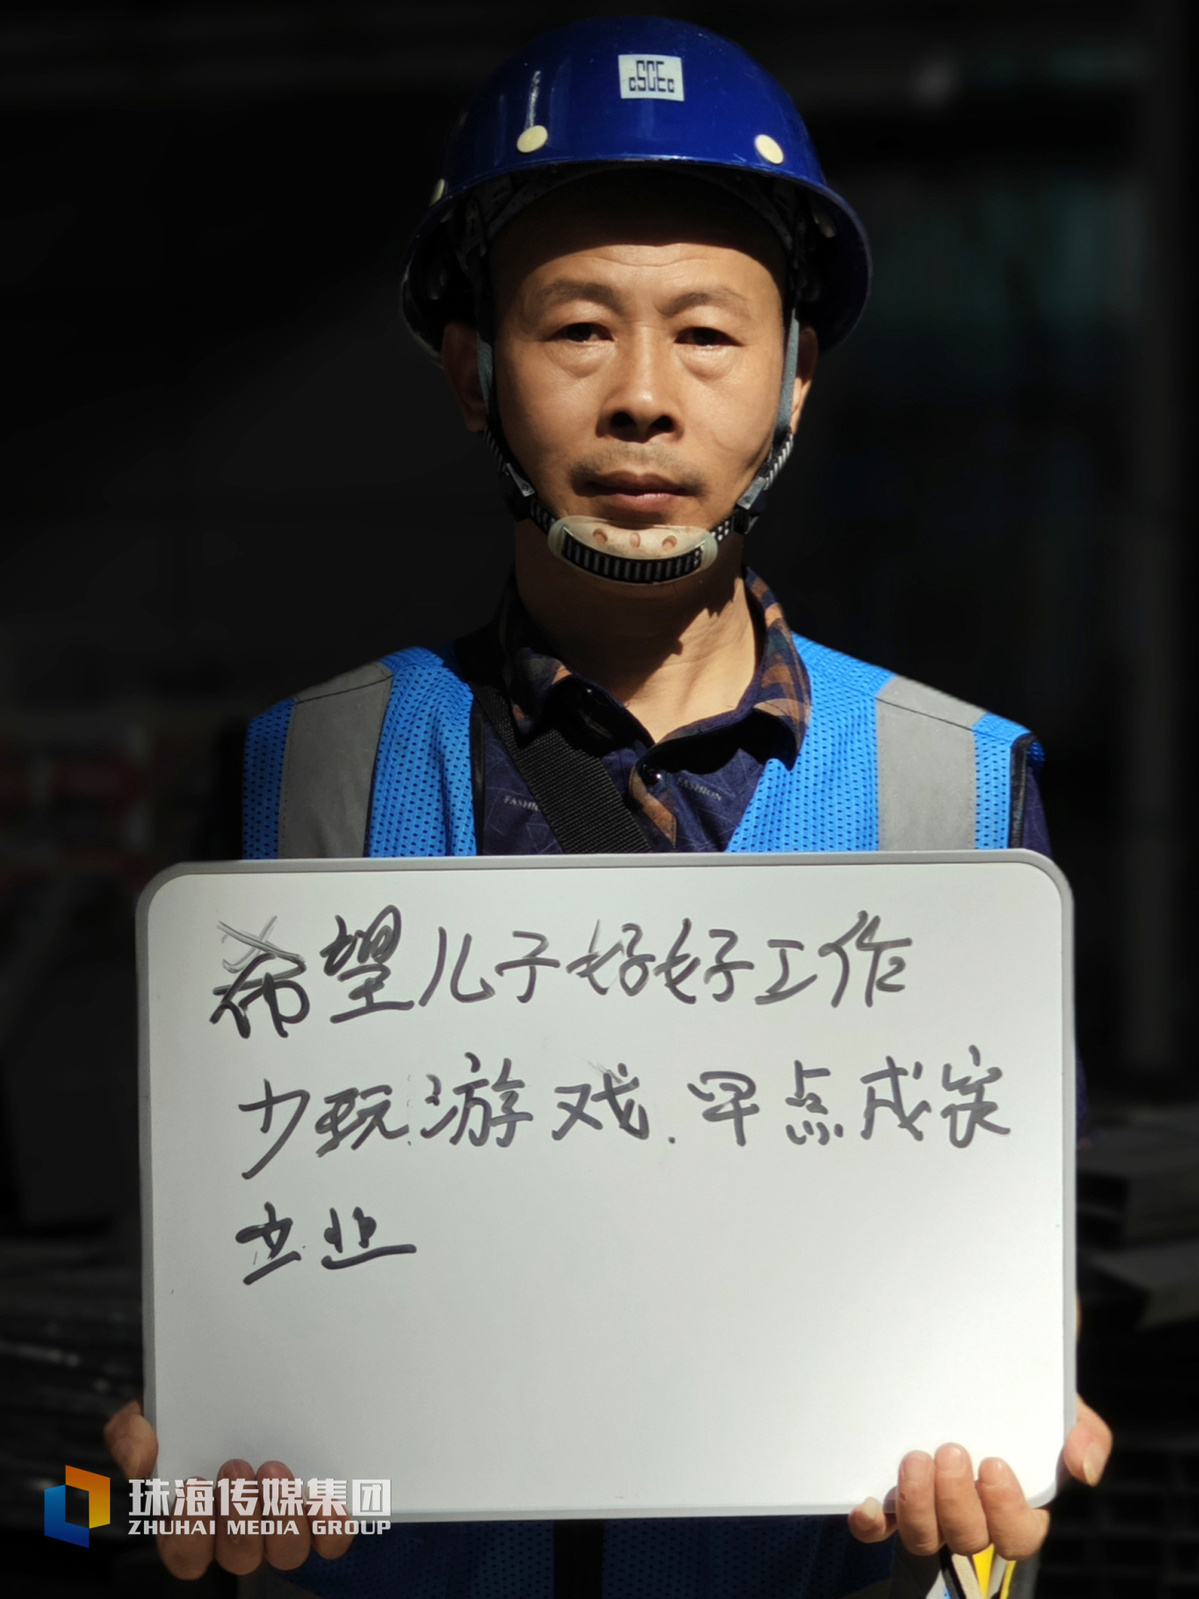 CSCEC
FASHION
FASHION
希望儿子好好工作
少玩游戏.早点成家
立业
珠海传媒集团
ZHUHAI MEDIA GROUP